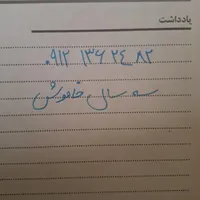 یادداشت
۰۹۱۲ ۱۳۶ ۲۴ ۸۲
سه سال خاموش